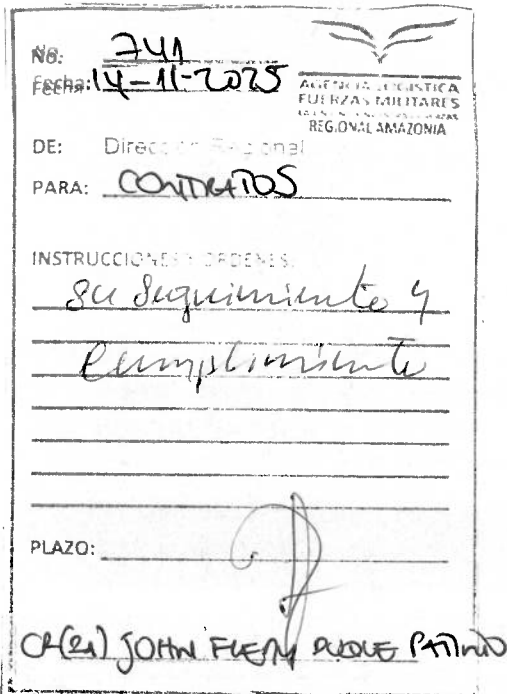 No: 741
Fecha: 14-11-2025
AGENCIA LOGISTICA
FUERZAS MILITARES
REGIONAL AMAZONIA
DE: Dirección Regional
PARA: CONTRATOS
INSTRUCCIONES ORDENES:
su seguimiento y
cumplimiento
PLAZO:
CR(RA) JOHN PATIÑO